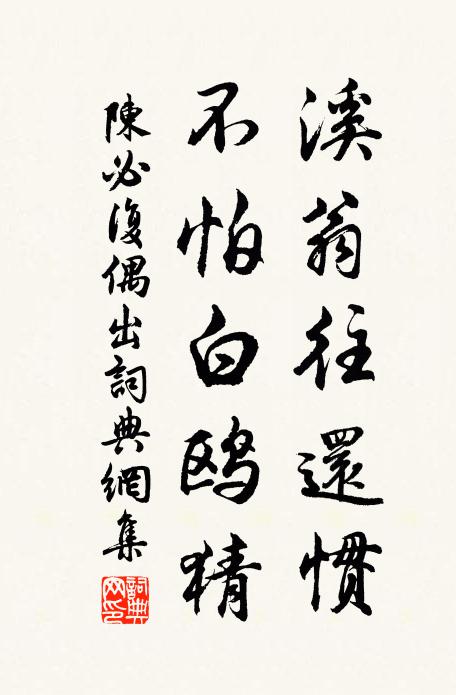 溪翁往還慣
不怕白鸥猜
陳必復偶出詞典網集
詞典网印